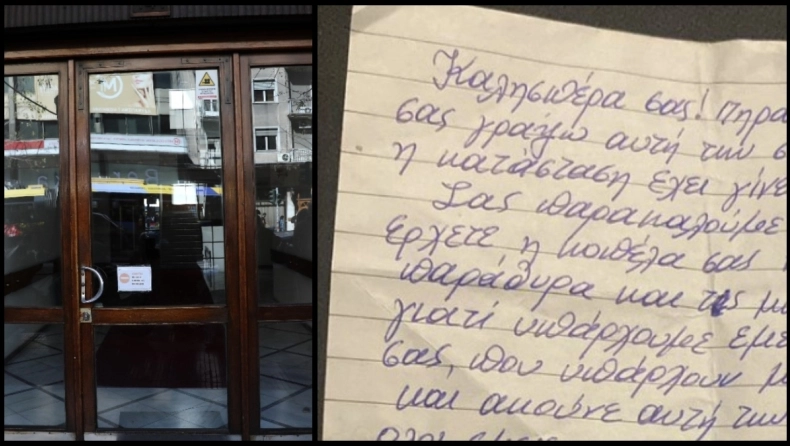 Καλησπέρα σας! Πηρα
σας γράψω αυτή την σ
η κατάσταση εχει γίνε
Σας παρακαλούμε
έρχετε η κοπέλα σας
παράθυρα και τις μ
γιατί υπάρχουμε εμε
σας, που υπάρχουν μ
και ακούνε αυτή την